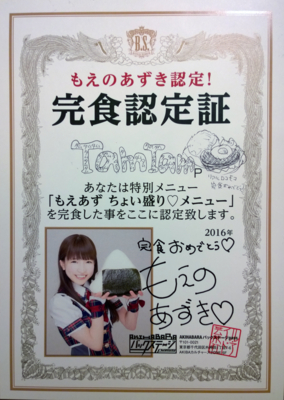 B.S.
もえのあずき認定!
完食認定証
TamTamP
あなたは特別メニュー
「もえあず ちょい盛り♡メニュー」
を完食した事をここに認定致します。
2016年
完食おめでとう♡
もえの
あずき♡
AKIHABARA
バックステージ